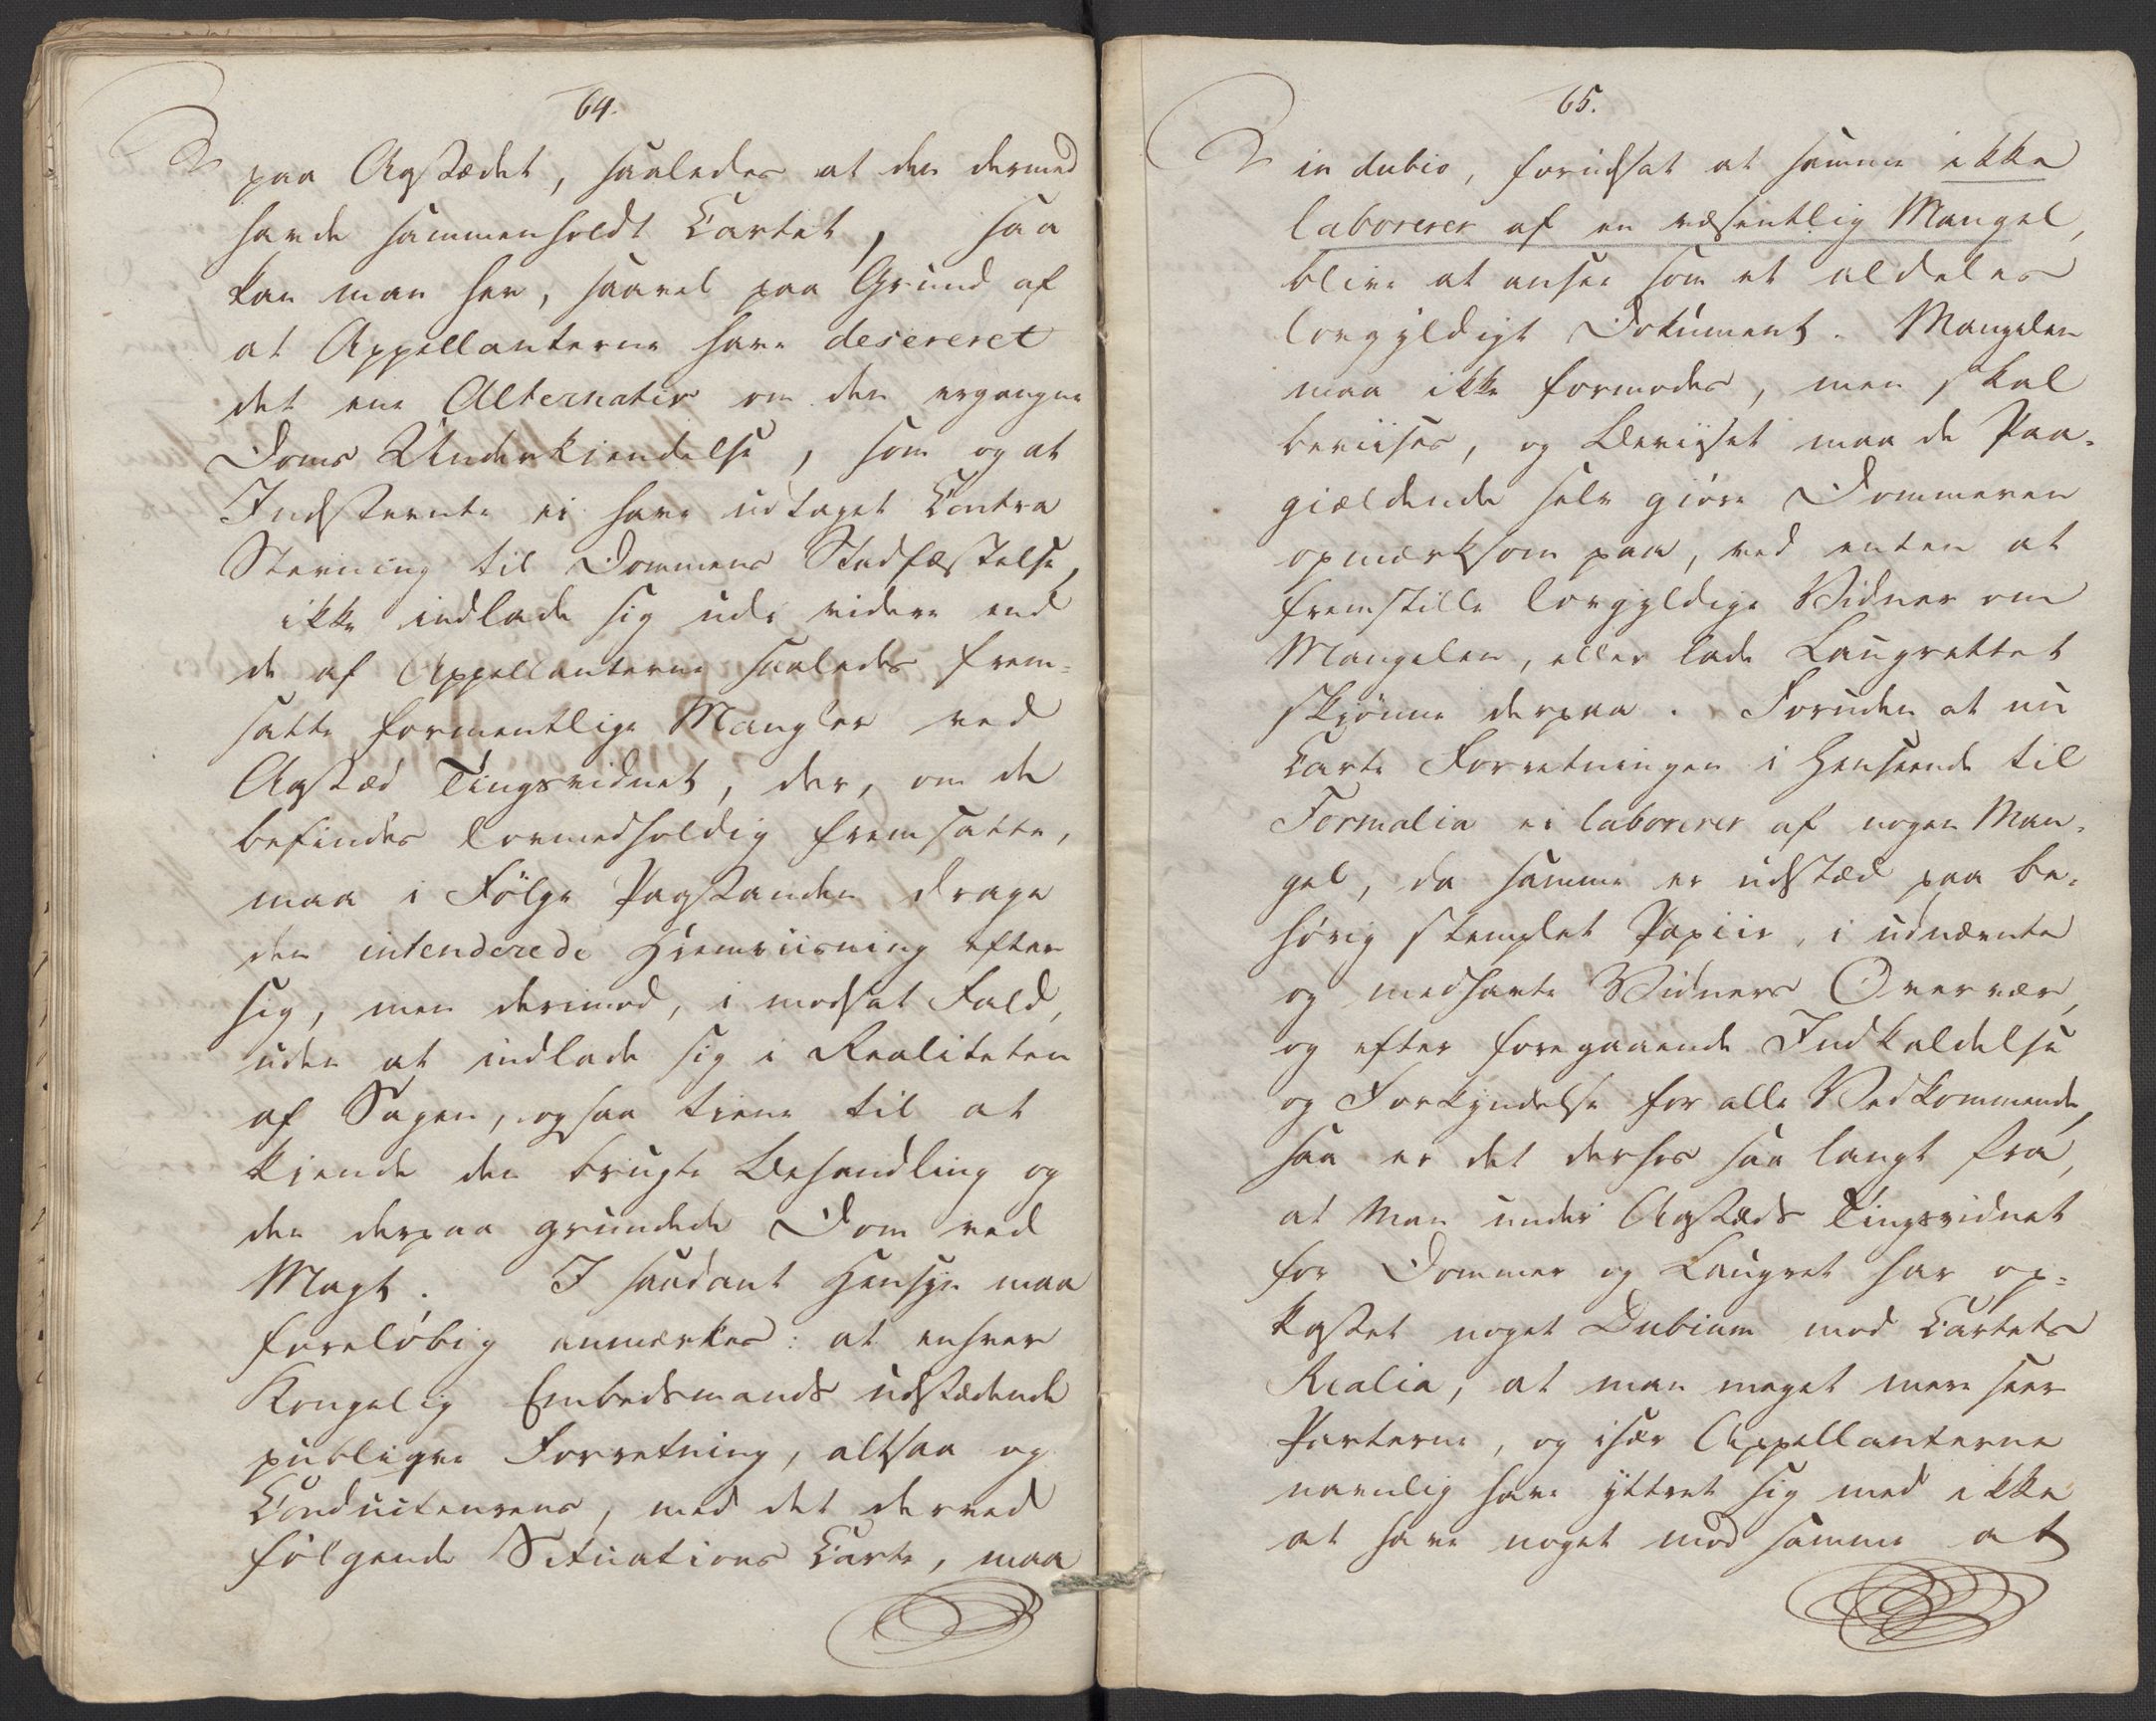 64.
paa Aastædet, saaledes at den dermed
havde sammenholdt Cartet, saa
kan man her, saavel paa Grund af
at Appellanterne have desereret
det ene Alternativ om den ergangne
Doms Underkiendelse, som og at
Indstevnte ei have udtaget Contra
Stevning til Dommens Stadfæstelse,
ikke indlade sig udi videre end
de af Appellanterne saaledes frem-
satte formentlige Mangler ved
Aastæd Tingsvidnet, der, om de
befindes lovmedholdig fremsatte,
maa i Følge Paastanden drage
den intenderede Hiemviisning efter
sig, men derimod, i modsat Fald,
uden at indlade sig i Realiteten
af Sagen, ogsaa tiene til at
kiende den brugte Behandling og
den derpaa grundede Dom ved
Magt. I saadant Hensyn maa
foreløbig anmærkes: at enhver
Kongelig Embedsmands udstædende
publiqve Forretning, altsaa og
Conducteurens, med det derved
følgende Situations Carte, maa
65.
in dubio, forudsat at samme ikke
laborerer af en væsentlig Mangel,
blive at ansee som et aldeles
lovgyldigt Dokument. Mangelen
maa ikke formodes, men skal
beviises, og Beviiset maa de Paa-
gieldende selv giøre Dommeren
opmærksom paa, ved enten at
fremstille lovgyldige Vidner om
Mangelen, eller lade Laugrettet
skjønne derpaa. Foruden at nu
Carte Forretningen i Henseende til
Formalia ei laborerer af nogen Man-
gel, da samme er udstæd paa be-
hørig stemplet Papiir, i udnævnte
og medhavte Vidners Overvær,
og efter foregaaende Indkaldelse
og Forkyndelse for alle Vedkommende,
saa er det derhos saa langt fra,
at Man under Aastæds Tingsvidnet
for Dommer og Laugret har op-
kastet noget Dubium mod Cartets
Realia, at man meget mere seer
Parterne, og især Appellanterne
navnlig have yttret sig med ikke
at have noget mod samme at